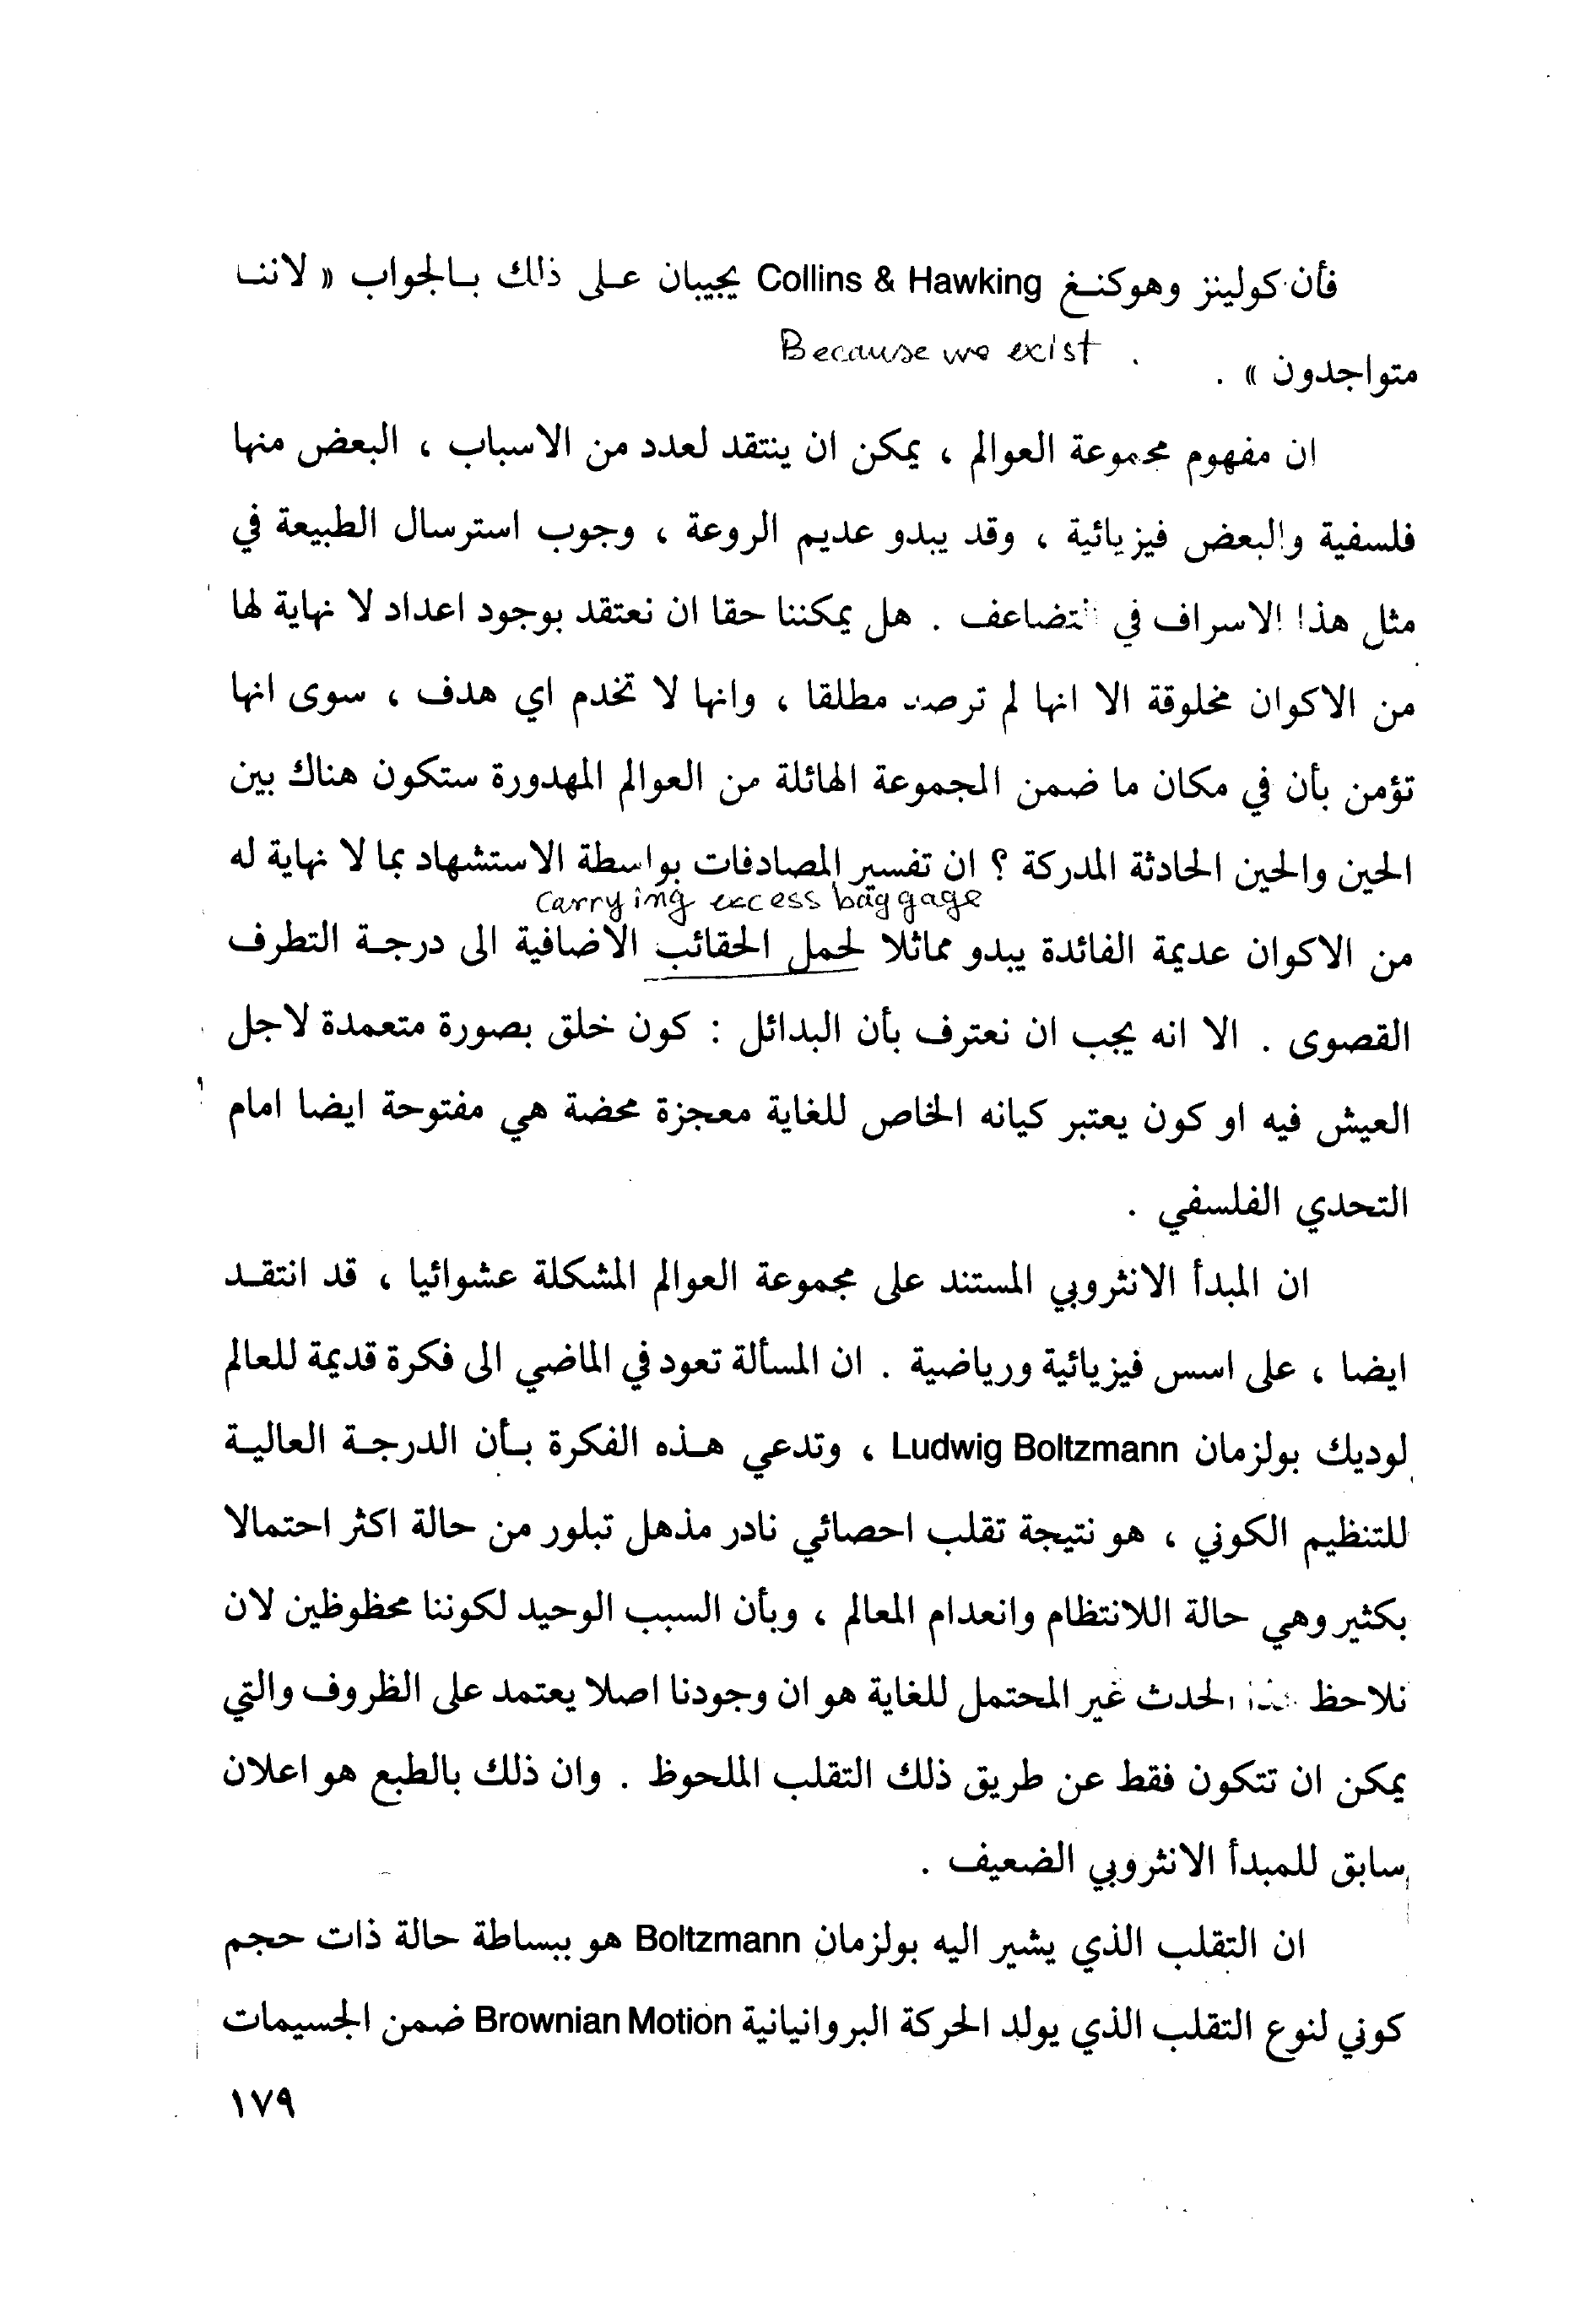 فأن كولينز وهوكنغ Collins & Hawking يجيبان على ذلك بالجواب « لاننا
Because we exist .
متواجدون » .
ان مفهوم مجموعة العوالم ، يمكن ان ينتقد لعدد من الاسباب ، البعض منها
فلسفية والبعض فيزيائية ، وقد يبدو عديم الروعة ، وجوب استرسال الطبيعة في
مثل هذا الاسراف في التضاعف . هل يمكننا حقا ان نعتقد بوجود اعداد لا نهاية لها
من الاكوان مخلوقة الا انها لم ترصد مطلقا ، وانها لا تخدم اي هدف ، سوى انها
تؤمن بأن في مكان ما ضمن المجموعة الهائلة من العوالم المهدورة ستكون هناك بين
الحين والحين الحادثة المدركة ؟ ان تفسير المصادفات بواسطة الاستشهاد بما لا نهاية له
carrying excess baggage
من الاكوان عديمة الفائدة يبدو مماثلا لحمل الحقائب الاضافية الى درجة التطرف
القصوى . الا انه يجب ان نعترف بأن البدائل : كون خلق بصورة متعمدة لاجل
العيش فيه او كون يعتبر كيانه الخاص للغاية معجزة محضة هي مفتوحة ايضا امام
التحدي الفلسفي .
ان المبدأ الانثروبي المستند على مجموعة العوالم المشكلة عشوائيا ، قد انتقد
ايضا ، على اسس فيزيائية ورياضية . ان المسألة تعود في الماضي الى فكرة قديمة للعالم
لوديك بولزمان Ludwig Boltzmann ، وتدعي هذه الفكرة بأن الدرجة العالية
للتنظيم الكوني ، هو نتيجة تقلب احصائي نادر مذهل تبلور من حالة اكثر احتمالا
بكثير وهي حالة اللانتظام وانعدام المعالم ، وبأن السبب الوحيد لكوننا محظوظين لان
نلاحظ هذا الحدث غير المحتمل للغاية هو ان وجودنا اصلا يعتمد على الظروف والتي
يمكن ان تتكون فقط عن طريق ذلك التقلب الملحوظ . وان ذلك بالطبع هو اعلان
سابق للمبدأ الانثروبي الضعيف .
ان التقلب الذي يشير اليه بولزمان Boltzmann هو ببساطة حالة ذات حجم
كوني لنوع التقلب الذي يولد الحركة البروانيانية Brownian Motion ضمن الجسيمات
١٧٩